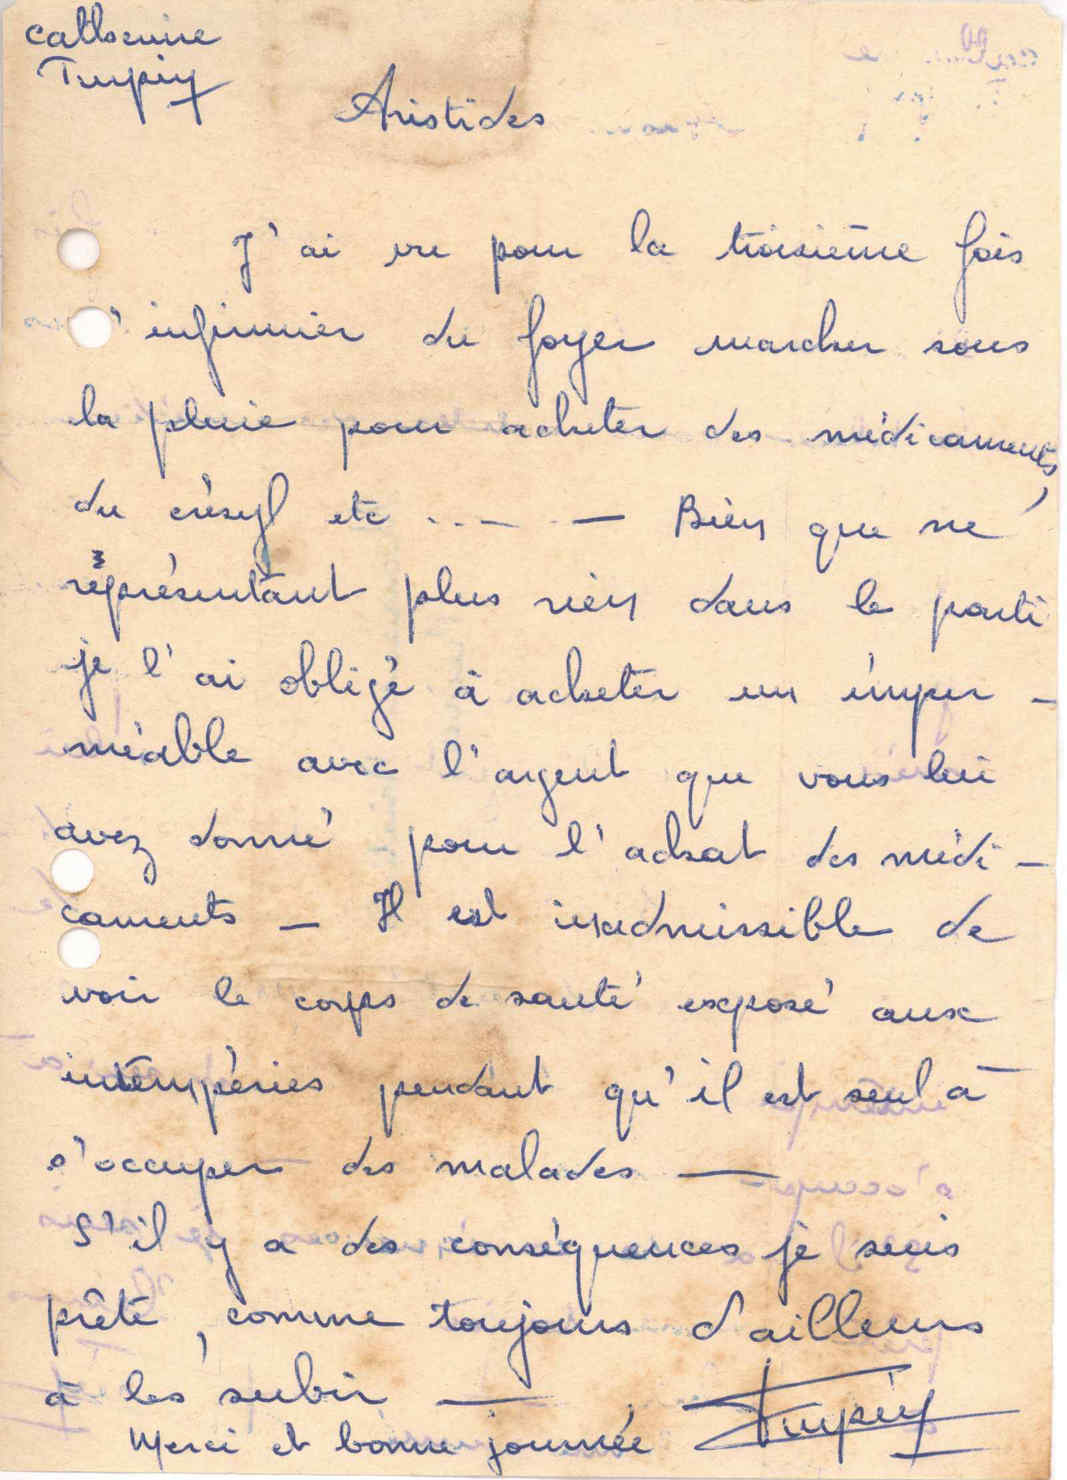 Catherine
Turpin
Aristides
J'ai vu pour la troisième fois
l'infirmier du foyer marcher sous
la pluie pour acheter des médicaments,
du crésyl etc ..-- — Bien que ne
représentant plus rien dans le parti
je l'ai obligé à acheter un imper -
méable avec l'argent que vous lui
avez donné pour l'achat des médi -
caments — Il est inadmissible de
voir le corps de santé exposé aux
intempéries pendant qu'il est seul à
s'occuper des malades —
S'il y a des conséquences je suis
prête, comme toujours d'ailleurs
à les subir —
Merci et bonne journée Turpin